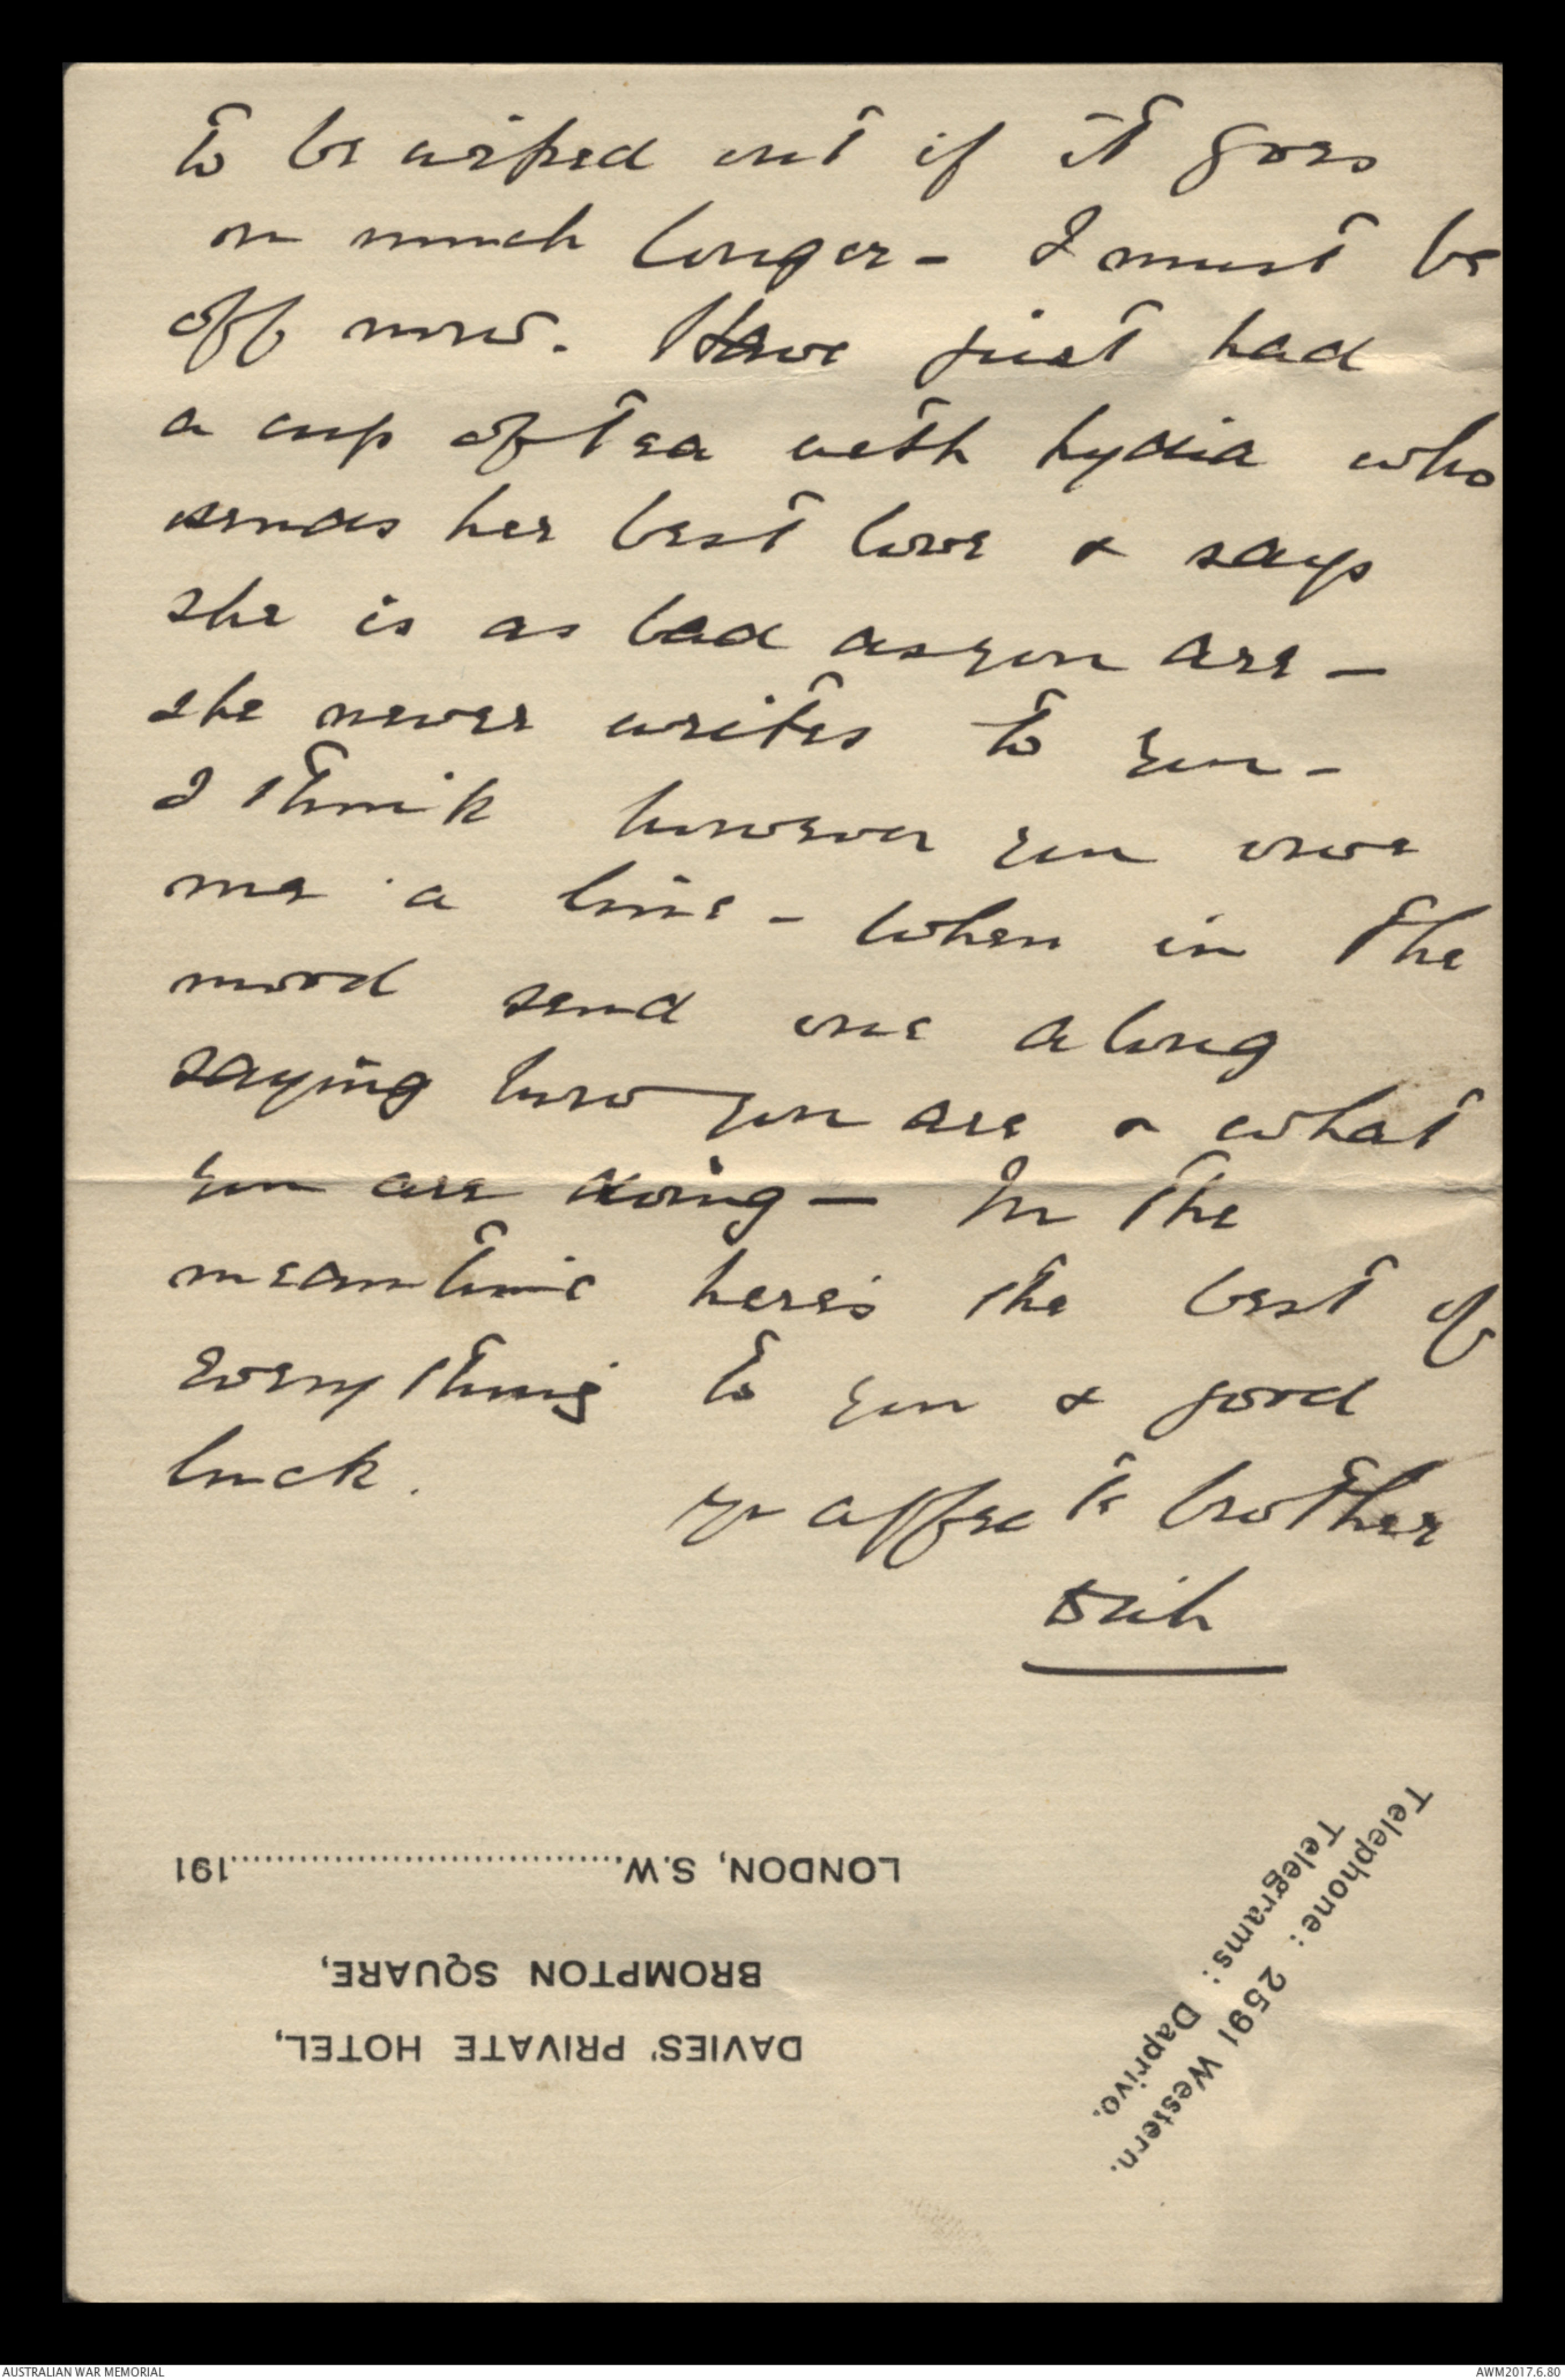 to be wiped out if it goes
on much longer - I must be
off now. Have just had
a cup of tea with Lydia who
sends her best love & says
she is as bad as you are -
she never writes to you -
I think however you owe
me a line - When in the
mood send one along
saying how you are & what
you are doing - In the
meantime here's the best of
everything to you & good
luck.
yr affecte brother
LONDON, S.W.................................191
BROMPTON SQUARE,
DAVIES' PRIVATE HOTEL,
Telephone: 2591 Western.
Telegrams: Daprivo.
AUSTRALIAN WAR MEMORIAL
AWM2017.6.80